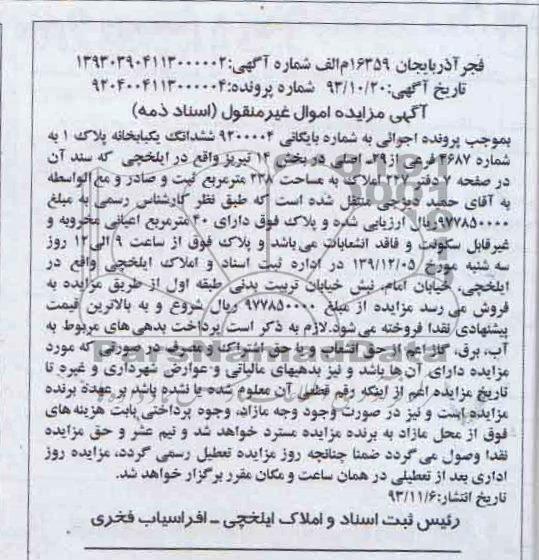 فجر آذربایجان ۱۶۳۵۹م الف شماره آگهی: ۱۳۹۳۰۳۹۰۴۱۱۳۰۰۰۰۰۲
تاریخ آگهی: ۹۳/۱۰/۲۰ شماره پرونده: ۹۲۰۴۰۰۴۱۱۳۰۰۰۰۰۴
آگهی مزایده اموال غیرمنقول (اسناد ذمه)
بموجب پرونده اجرائی به شماره بایگانی ۹۲۰۰۰۰۴ ششدانگ یکبابخانه پلاک ۱ به
شماره ۴۶۸۷ فرعی از ۲۹ـ اصلی در بخش ۱۴ تبریز واقع در ایلخچی که سند آن
در صفحه ۷ دفتر ۲۲۷ املاک به مساحت ۲۳۸ مترمربع ثبت و صادر و مع الواسطه
به آقای حمید دیزجی منتقل شده است که طبق نظر کارشناس رسمی به مبلغ
۹۷۷۸۵۰۰۰۰ ریال ارزیابی شده و پلاک فوق دارای ۴۰ مترمربع اعیانی مخروبه و
غیرقابل سکونت و فاقد انشعابات می باشد و پلاک فوق از ساعت ۹ الی ۱۲ روز
سه شنبه مورخ ۱۳۹/۱۲/۰۵ در اداره ثبت اسناد و املاک ایلخچی واقع در
ایلخچی، خیابان امام، نبش خیابان تربیت بدنی طبقه اول از طریق مزایده به
فروش می رسد مزایده از مبلغ ۹۷۷۸۵۰۰۰۰ ریال شروع و به بالاترین قیمت
پیشنهادی نقدا فروخته می شود. لازم به ذکر است پرداخت بدهی های مربوط به
آب، برق، گاز اعم از حق انشعاب و یا حق اشتراک و مصرف در صورتی که مورد
مزایده دارای آن ها باشد و نیز بدهیهای مالیاتی و عوارض شهرداری و غیره تا
تاریخ مزایده اعم از اینکه رقم قطعی آن معلوم شده یا نشده باشد بر عهده برنده
مزایده است و نیز در صورت وجود وجه مازاد، وجوه پرداختی بابت هزینه های
فوق از محل مازاد به برنده مزایده مسترد خواهد شد و نیم عشر و حق مزایده
نقدا وصول می گردد ضمنا چنانچه روز مزایده تعطیل رسمی گردد، مزایده روز
اداری بعد از تعطیلی در همان ساعت و مکان مقرر برگزار خواهد شد.
تاریخ انتشار: ۹۳/۱۱/۶
رئیس ثبت اسناد و املاک ایلخچی ـ افراسیاب فخری